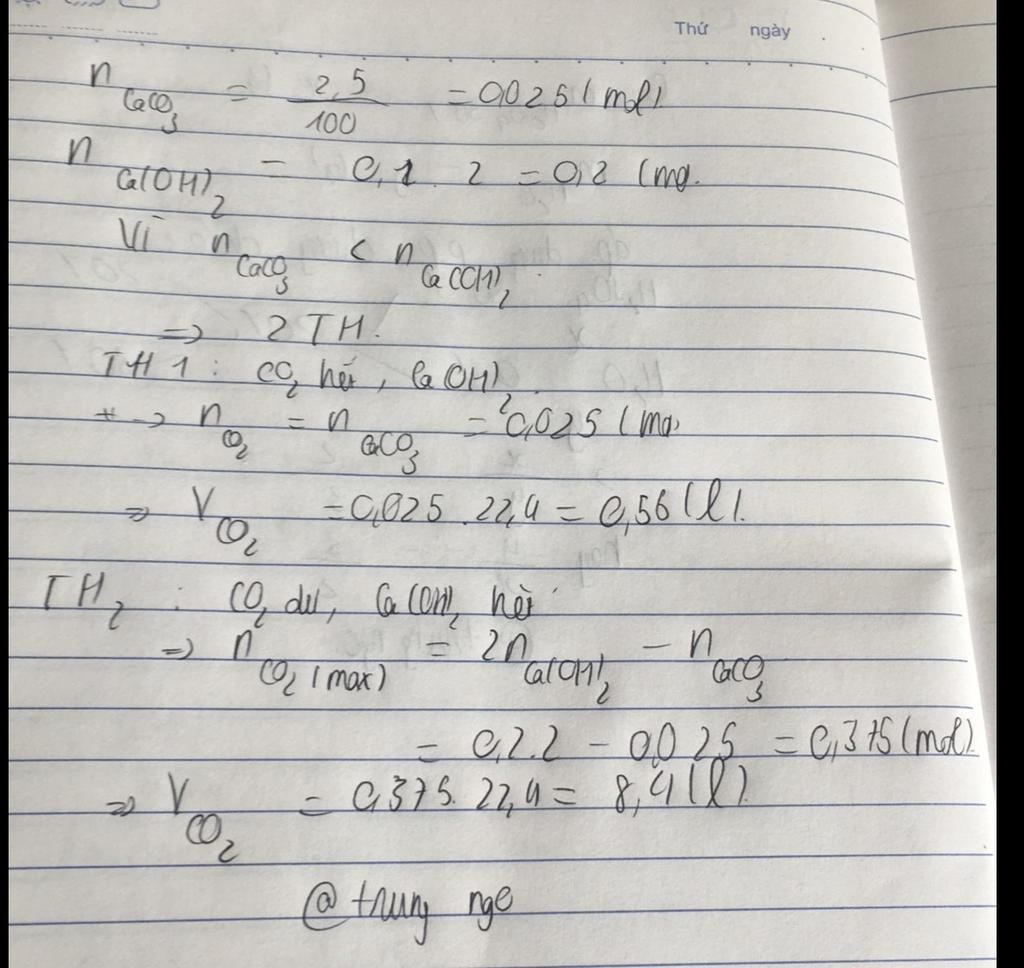 Thứ ngày
n CaCO3 = 2,5/100 = 0,025 (mol).
n Ca(OH)2 = 0,1 . 2 = 0,2 (mo.
Vì n CaCO3 < n Ca(OH)2.
=> 2 TH.
TH1 : CO2 hết, Ca(OH)2
-> n CO2 = n CaCO3 = 0,025 (mo)
=> V CO2 = 0,025 . 22,4 = 0,56 (l).
TH2 : CO2 dư, Ca(OH)2 hết
=> n CO2 (max) = 2n Ca(OH)2 - n CaCO3
= 0,2.2 - 0,025 = 0,375 (mol).
=> V CO2 = 0,375. 22,4 = 8,4 (l).
@trung nge